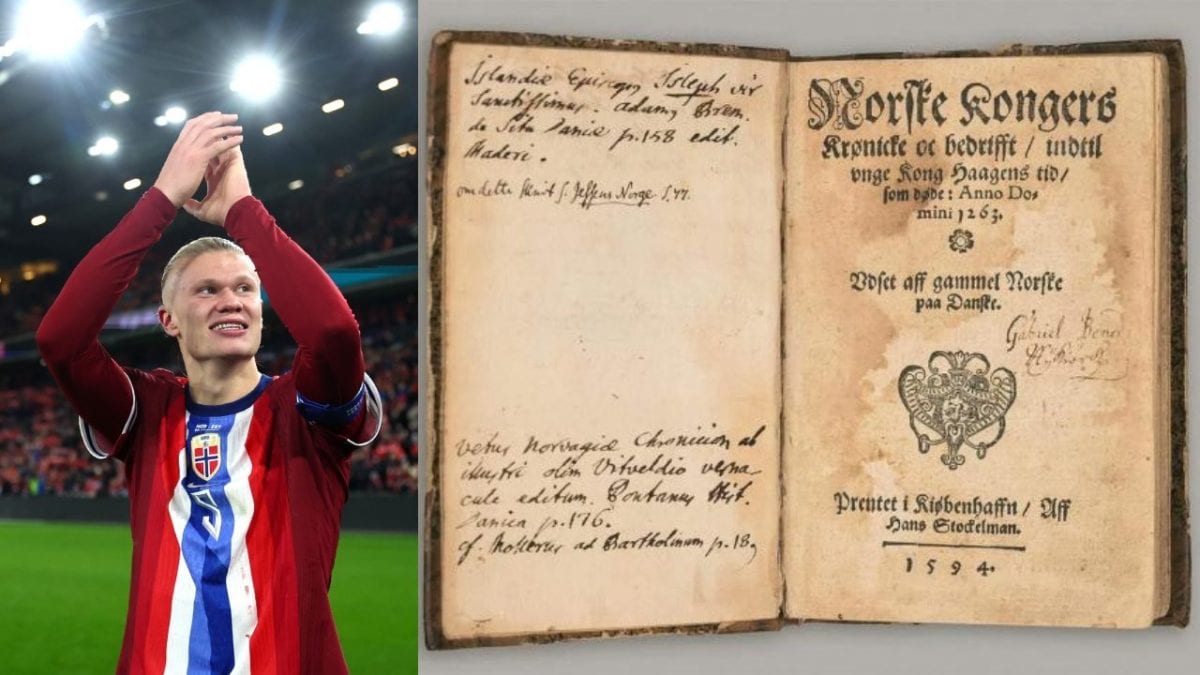 9
Islandiæ Episcopus Isleph vir
Sanctissimus. Adamus Brem.
de Situ Daniæ p. 158 edit.
Maderi.
om dette skrift s. Jessens Norge S. 77.
vetus Norvagiæ Chronicion ab
illustri olim Vitveldio verna-
cule editum. Pontanus Hist.
Danica p. 176.
cf. Mollerus ad Bartholinum p. 18
Norske Kongers
Krønicke oc bedrifft / indtil
vnge Kong Haagens tid /
som døde: Anno Do-
mini 1263.
Vdset aff gammel Norske
paa Danske.
Gabriel
Prentet i Kiøbenhaffn / Aff
Hans Stockelman.
1 5 9 4.